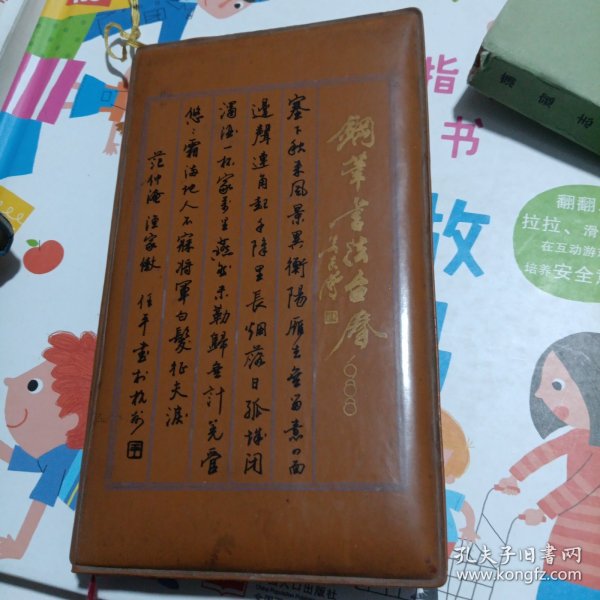 鋼筆書法台曆
1988
塞下秋来風景異衡陽雁去無留意四面
邊聲連角起千嶂里長烟落日孤城闭
濁酒一杯家万里燕然未勒歸無計羌管
悠〻霜满地人不寐将軍白髮征夫淚
范仲淹 漁家傲 任平書於杭州
指
书
故
翻翻、
拉拉、滑
在互动游
培养安全
人口出版社
孔夫子旧书网
www.kongfz.com